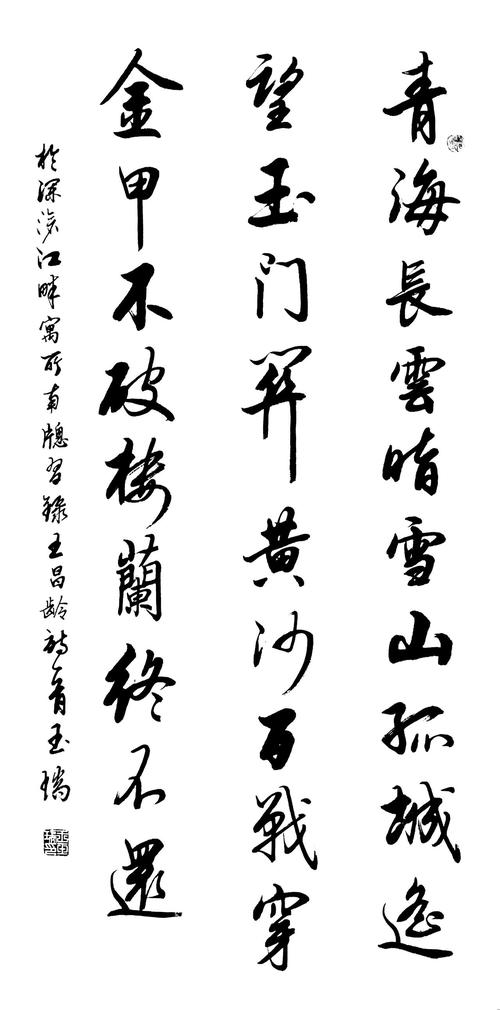 青海長雲暗雪山孤城遙
望玉門關黃沙百戰穿
金甲不破樓蘭終不還
於深江畔寓所南牕習錄王昌齡詩玉瑞